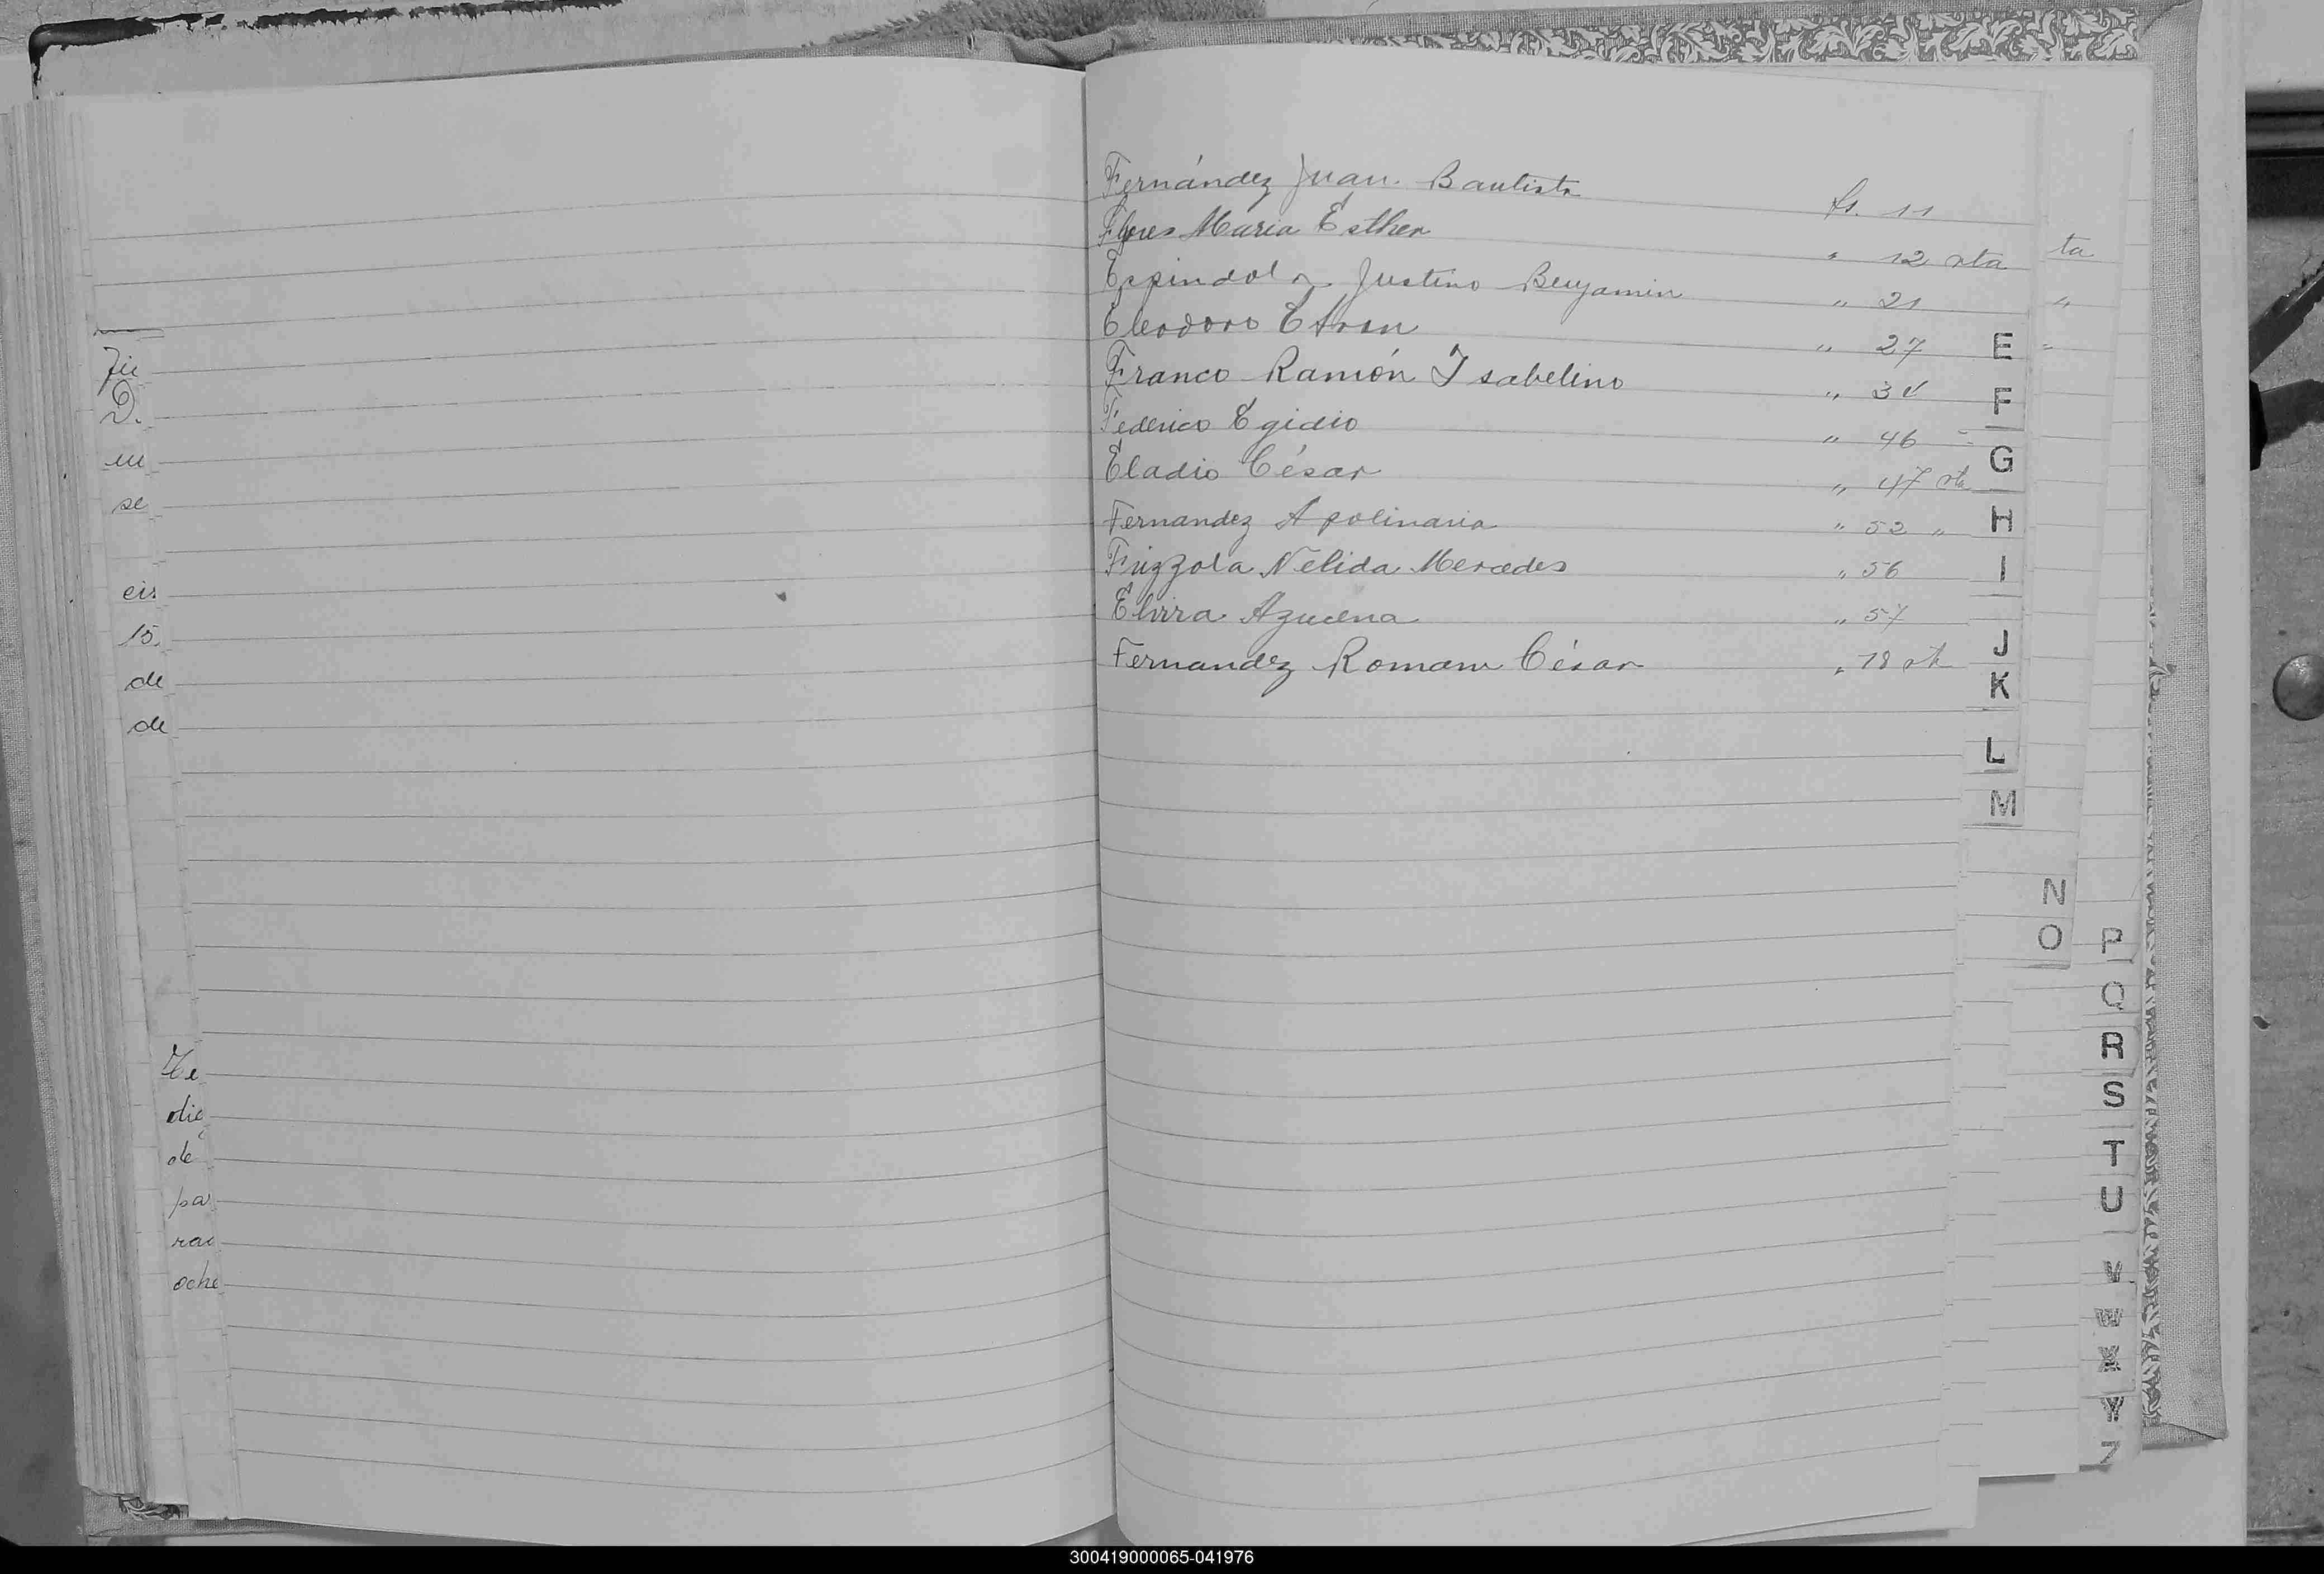 Fernández Juan Bautista fs. 11
Flores María Esther " 12 vta
Espindola Justino Benjamin " 21
Eleodoro Efren " 27
Franco Ramón Isabelino " 34
Federico Egidio " 46
Eladio César " 47 vta
Fernandez Apolinaria " 52 "
Frizzola Nélida Mercedes " 56
Elvira Azucena " 57
Fernandez Roman César " 78 vta
ta
"
"
E
F
G
H
I
J
K
L
M
N
O
P
Q
R
S
T
U
V
W
X
Y
Z
D.
en
se
eis
15.
de
de
de
pa
rao
oche
300419000065-041976